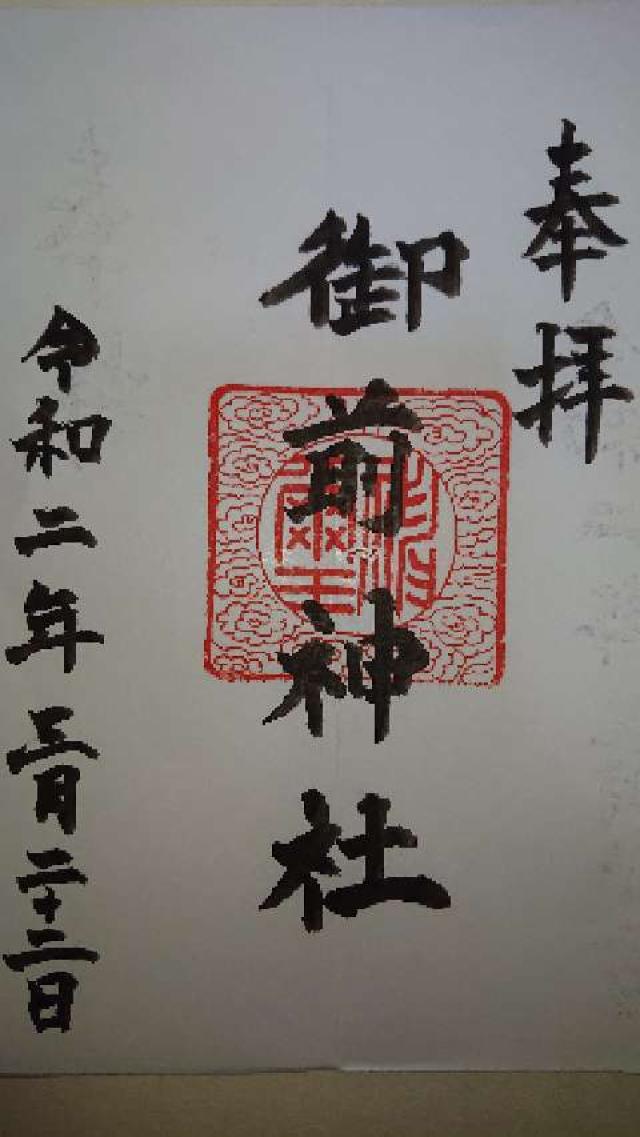 奉拝
御前神社
令和二年三月二十二日